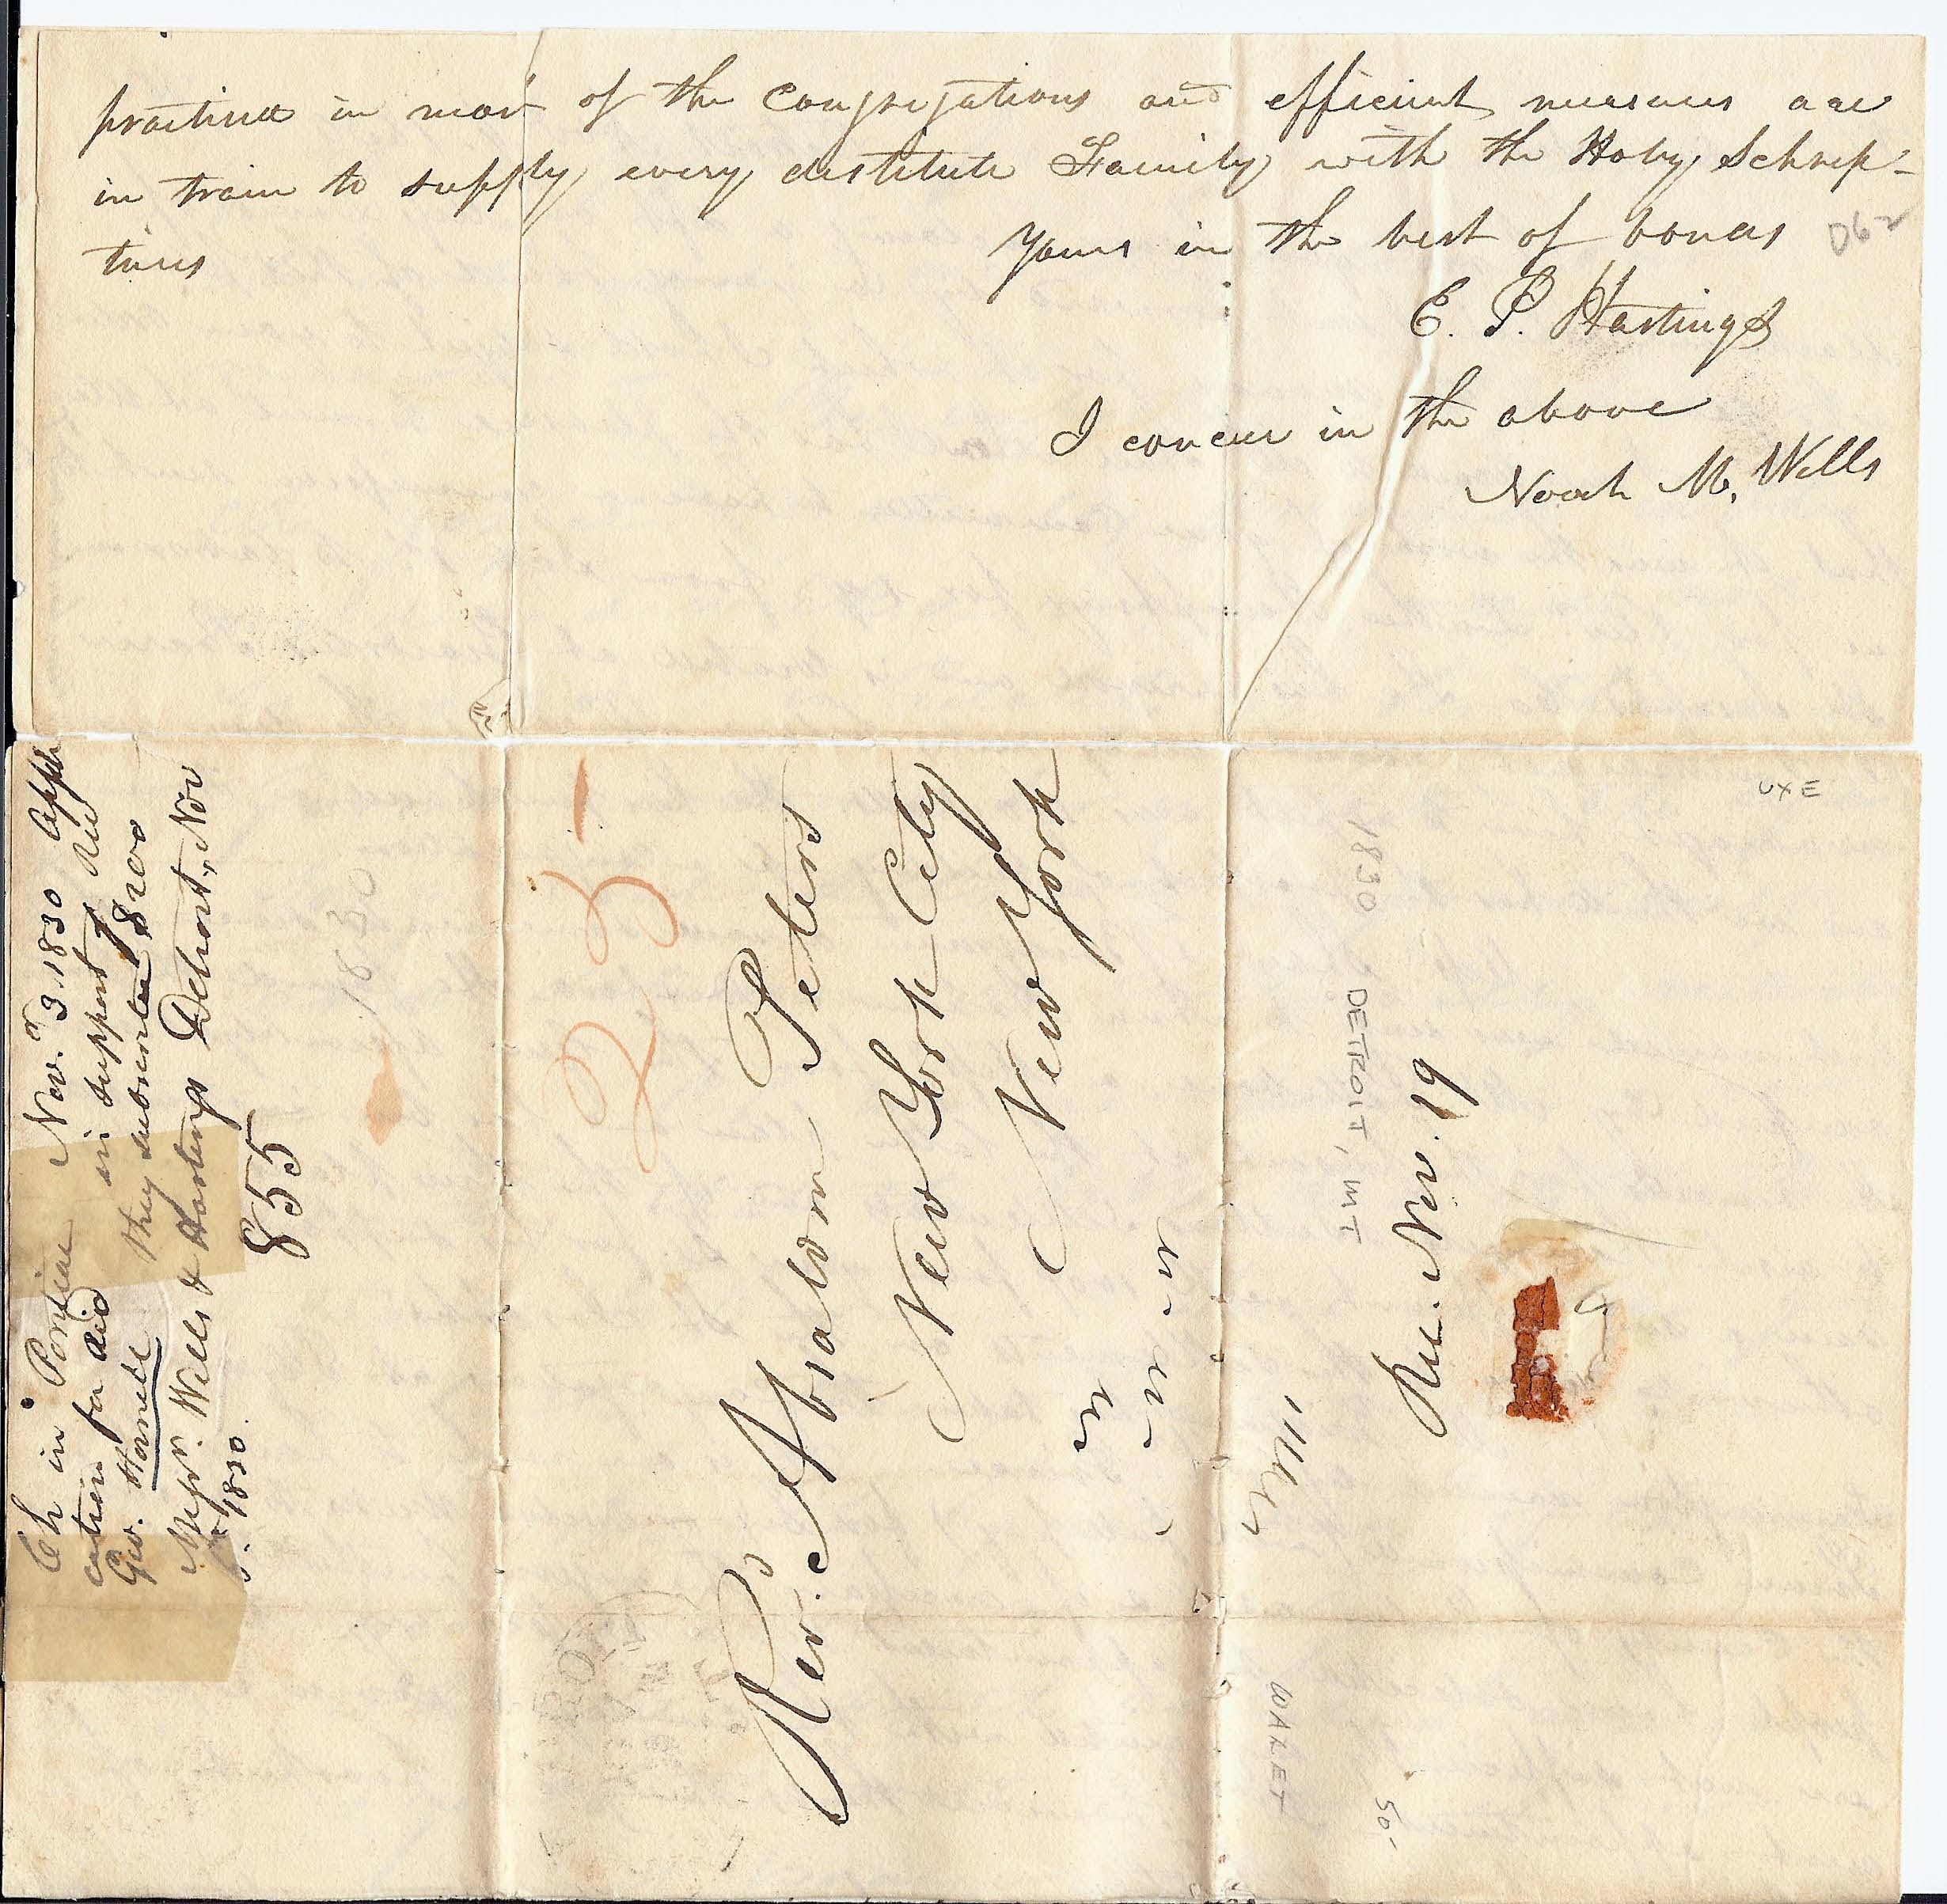 practised in most of the Congregations and efficient measures are
in train to supply every destitute Family with the Holy Schrip-
tures
Yours in the best of bonds
E. P. Hastings
I concur in the above
Noah M. Wells
062
Ch in Pontiac Nov.r 3 1830 Appli
cation for aid in support Rev
Geo. Hornell they subscribe $200
Messrs. Wells & Hastings Detroit, Nov
1830.
855
1830
25
Rev. Absalom Peters
New York City
New York
UXE
1830 DETROIT, MT
Rec. Nov. 19
WAKET
50-